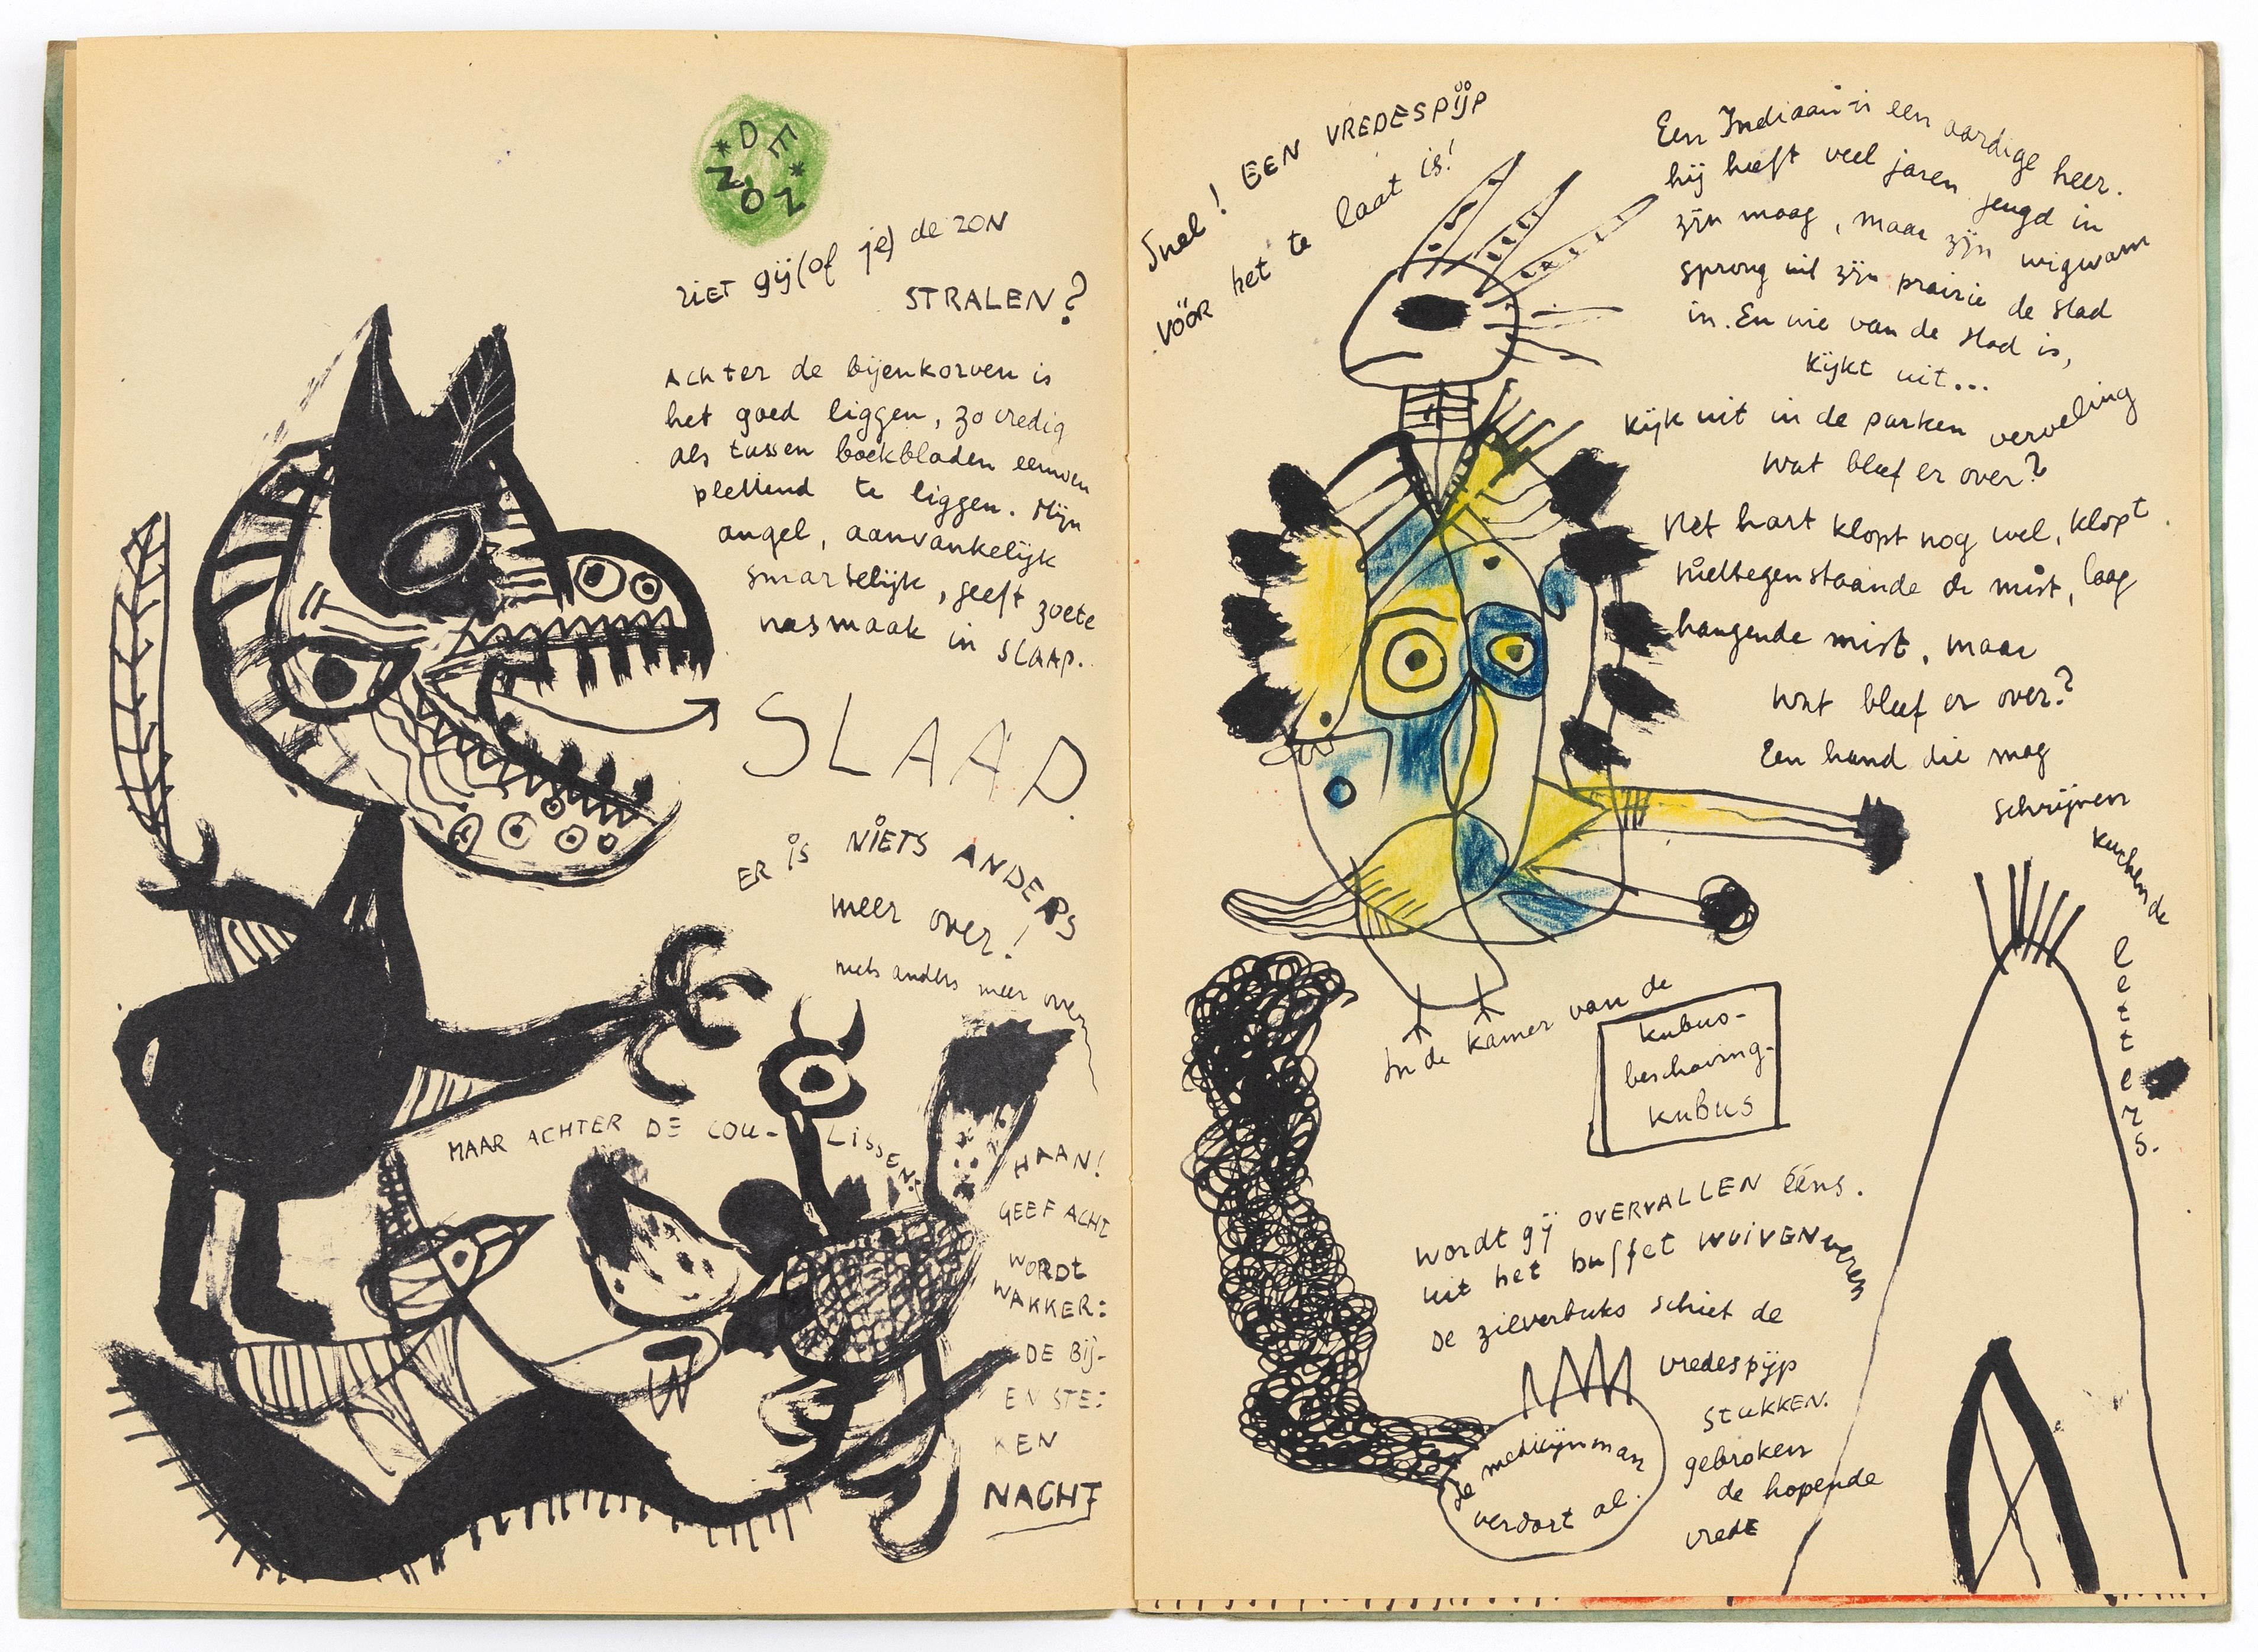 *DE*
ZON
ZIET gij (of je) de ZON
STRALEN?
Achter de bijenkorven is
het goed liggen, zo vredig
als tussen boekbladen eeuwen
plettend te liggen. Mijn
angel, aanvankelijk
smartelijk, geeft zoete
nasmaak in SLAAP.
SLAAP.
ER is NIETS ANDERS
meer over!
niets anders meer over
MAAR ACHTER DE COU-LISSEN:
HAAN!
GEEF ACHT
WORDt
WAKKER:
DE Bij-
EN STE:
KEN
NACHT
Snel! EEN VREDESPIJP
VÓÓR het te laat is!
Een Indiaan is een aardige heer.
hij heeft veel jaren jeugd in
zijn maag, maar zijn wigwam
sprong uit zijn prairie de stad
in. En wie van de stad is,
kijkt uit...
Kijk uit in de parken verveling
wat bleef er over?
Het hart klopt nog wel, klopt
niettegenstaande de mist, laag
hangende mist, maar
wat bleef er over?
Een hand die mag
schrijven
kuchende
letters.
In de kamer van de
kubus-
beschaving-
kubus
wordt gij OVERVALLEN ééns.
uit het buffet WUIVEN veren
De zilverbuks schiet de
vredespijp
STUKKEN.
gebroken
de hopende
vrede
de medicijnman
verdort al.